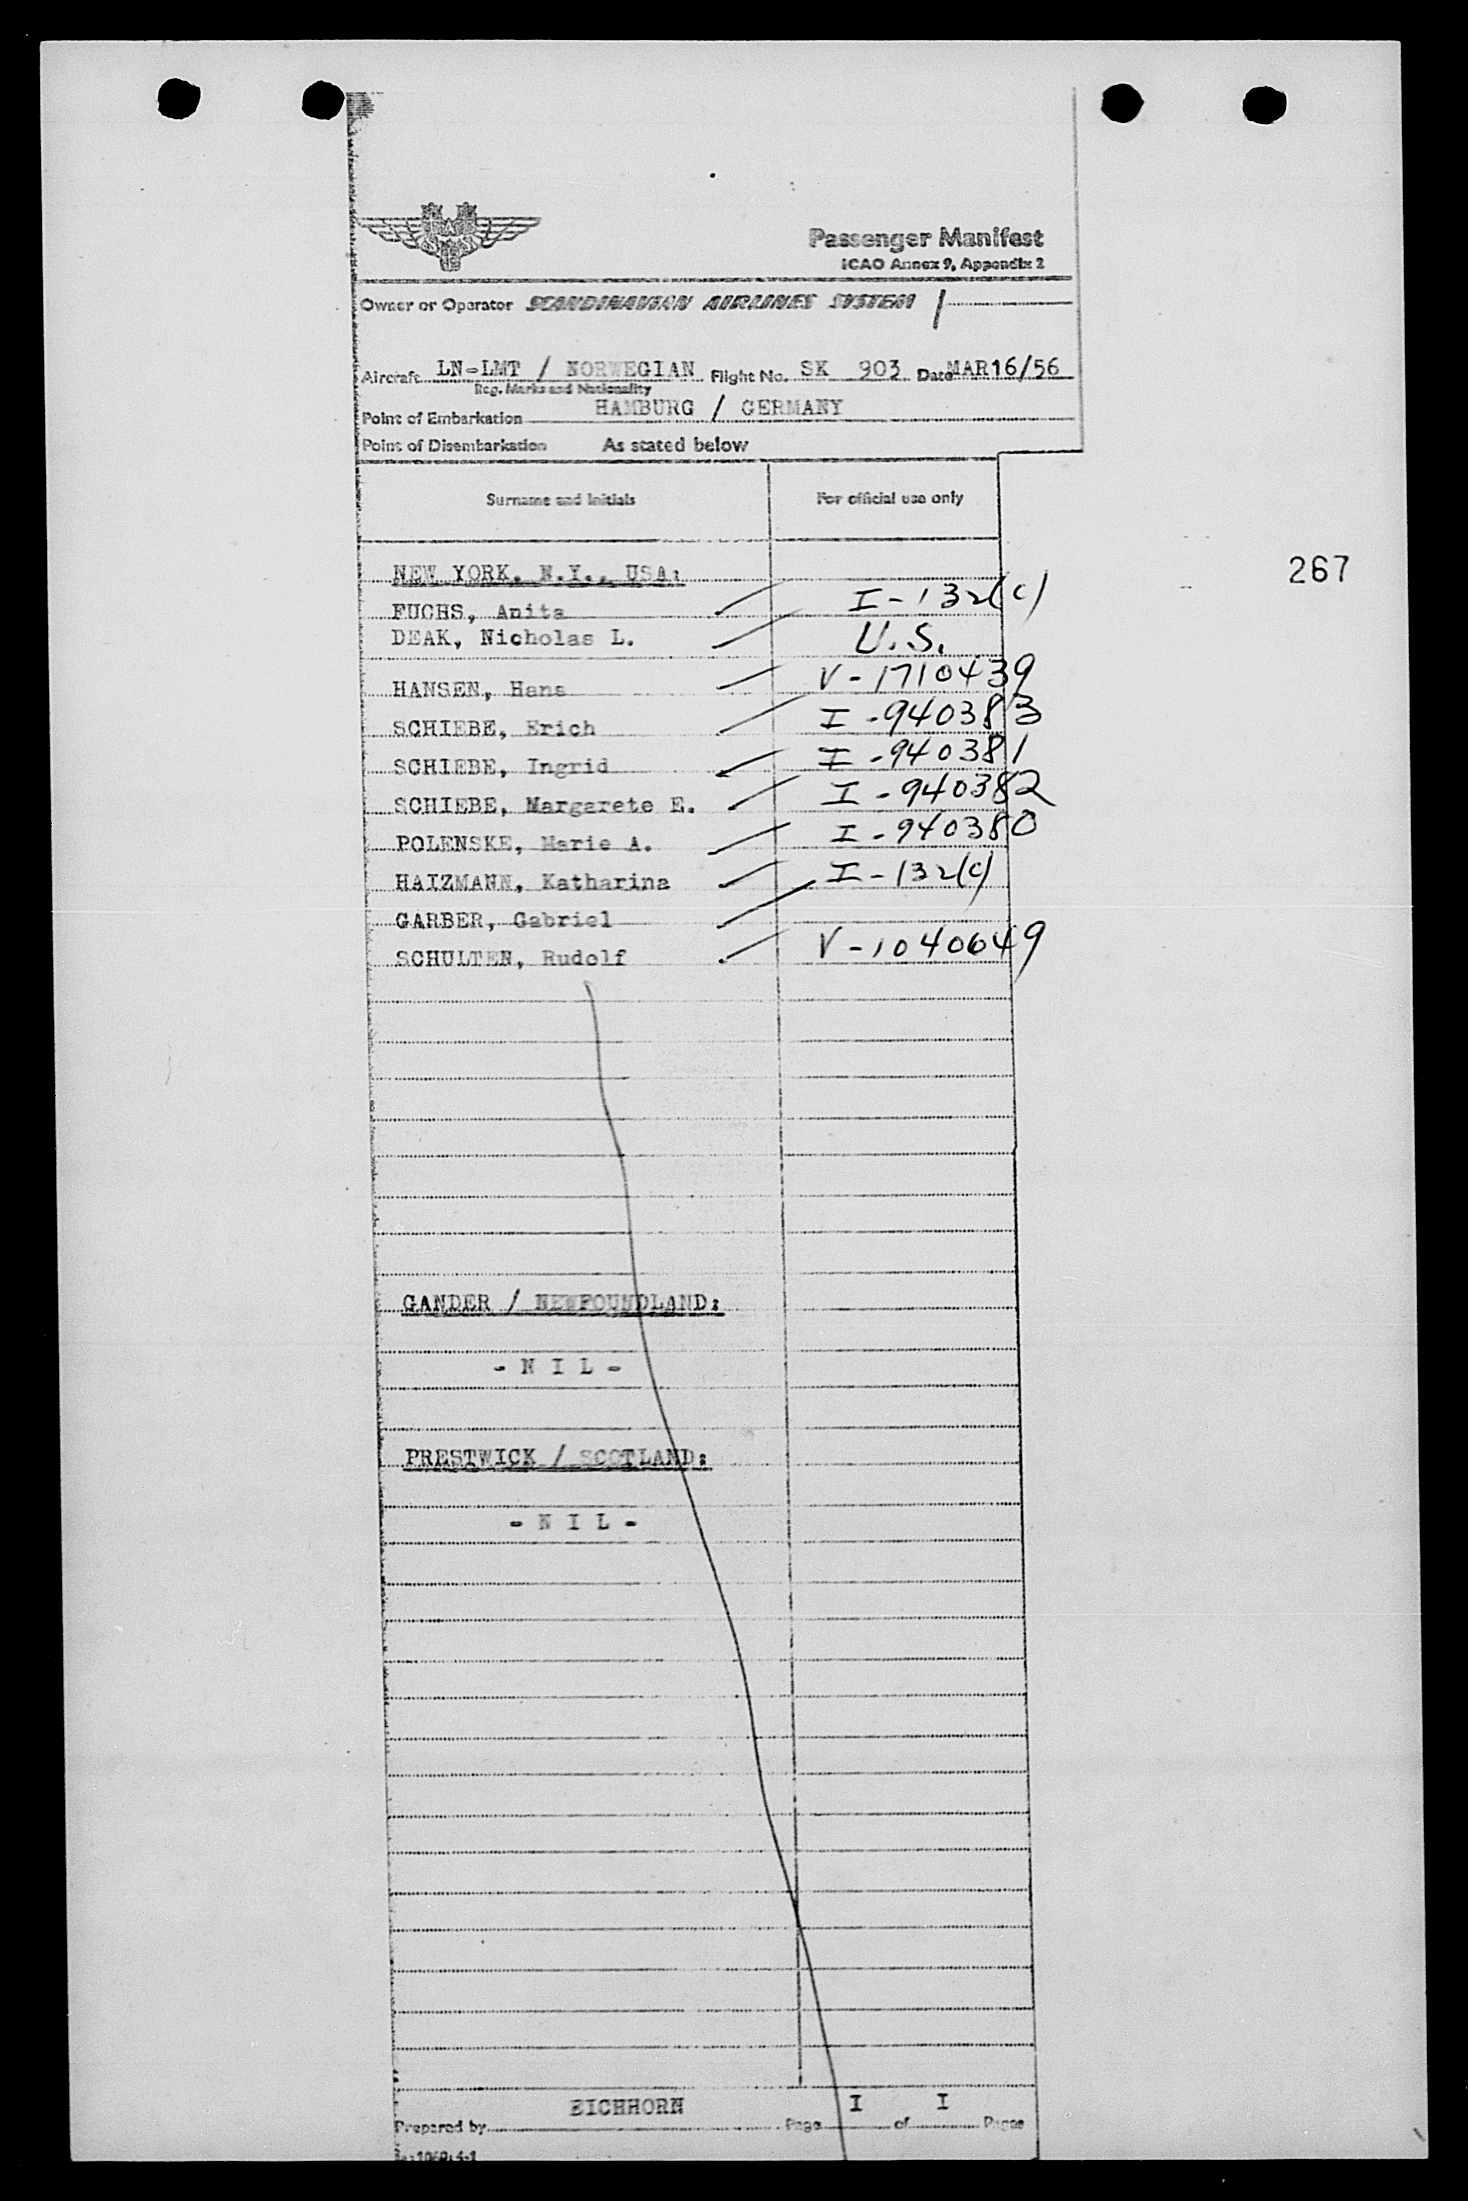 Passenger Manifest
ICAO Annex 9, Appendix 2
Owner or Operator SCANDINAVIAN AIRLINES SYSTEM
Aircraft LN-LMT / NORWEGIAN Flight No. SK 903 Date MAR16/56
Reg. Marks and Nationality
Point of Embarkation HAMBURG / GERMANY
Point of Disembarkation As stated below
Surname and Initials For official use only
267
NEW YORK, N.Y., USA:
FUCHS, Anita I-132(c)
DEAK, Nicholas L. U.S.
HANSEN, Hans V-1710439
SCHIEBE, Erich I-940383
SCHIEBE, Ingrid I-940381
SCHIEBE, Margarete E. I-940382
POLENSKE, Marie A. I-940380
HAIZMANN, Katharina I-132(c)
GARBER, Gabriel
SCHULTEN, Rudolf V-1040649
GANDER / NEWFOUNDLAND:
- N I L -
PRESTWICK / SCOTLAND:
- N I L -
Prepared by EICHHORN Page I of I Pages